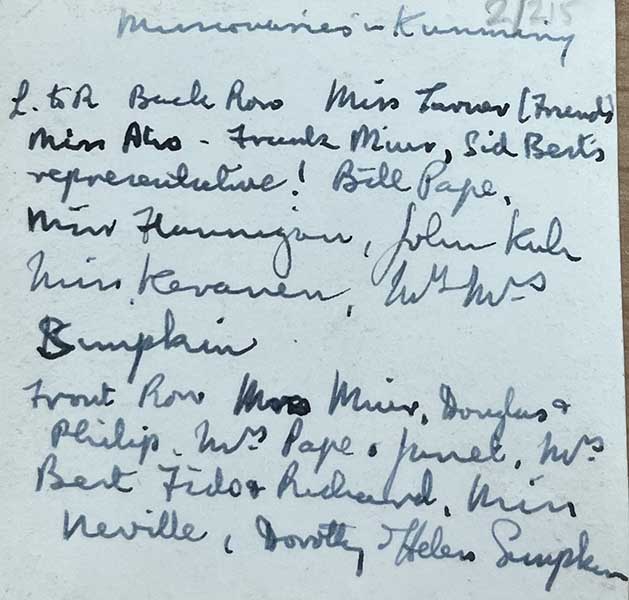 2/215
Missionaries in Kunming
L. to R Back Row Miss Turner (Friends)
Miss Aho - Frank Miur, Sid Bert's
representative! Bill Pape,
Miss Flannigan, John Kuhn
Miss Kevanen, Mr Mrs
Simpkin
Front Row Mrs Miur, Douglas &
Philip, Mrs Pape & Janet, Mrs
Bert Fido & Richard, Miss
Neville, Dorothy & Helen Simpkin